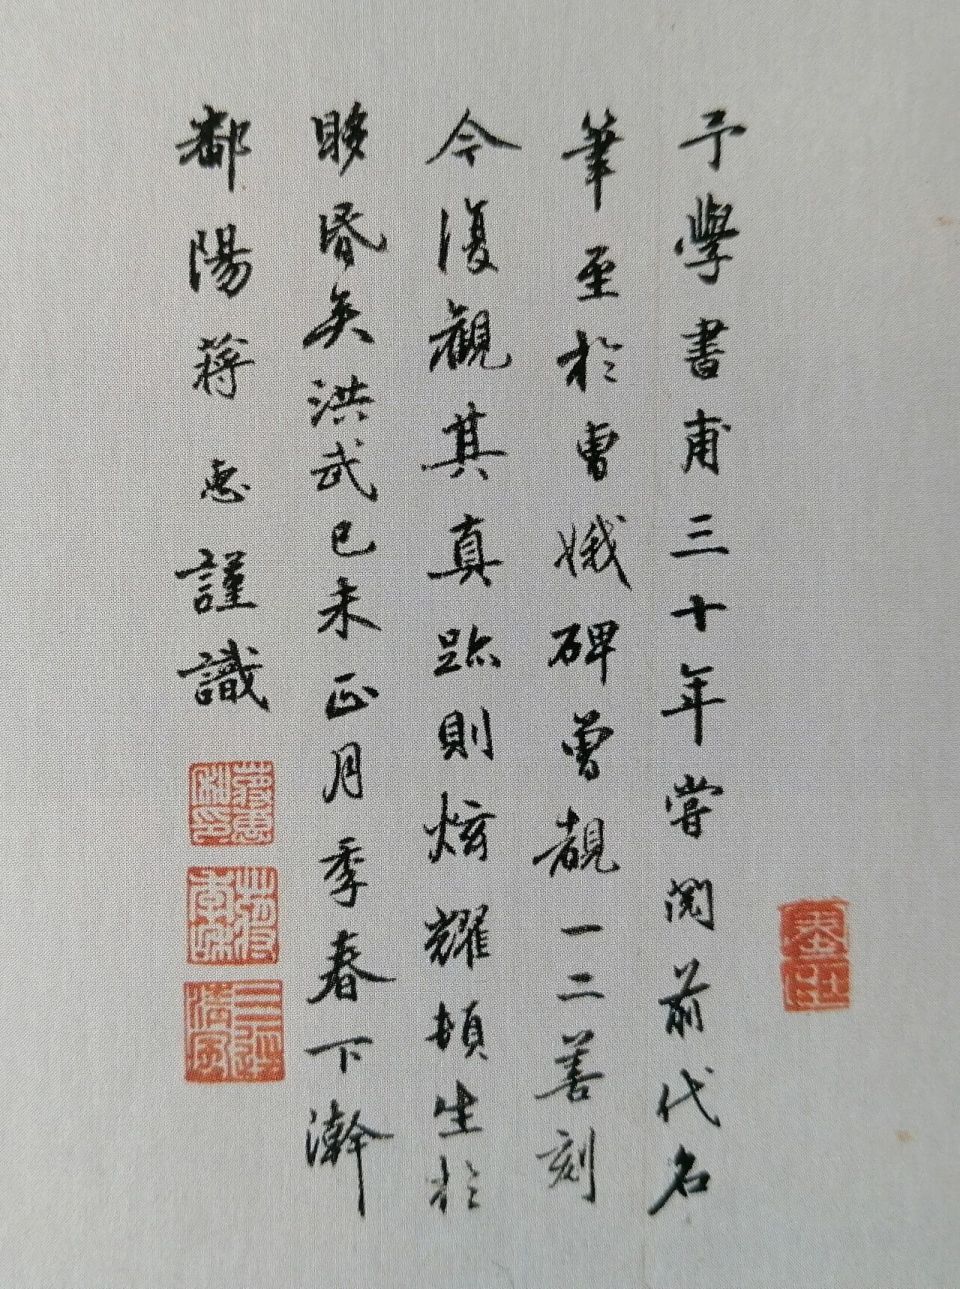 予學書甫三十年嘗閱前代名
筆至於曹娥碑曾覩一二善刻
今復觀其真跡則炫耀頓生於
眵昏矣洪武己未正月季春下澣
鄱陽蔣惠謹識
蔣惠私印
三逕清風